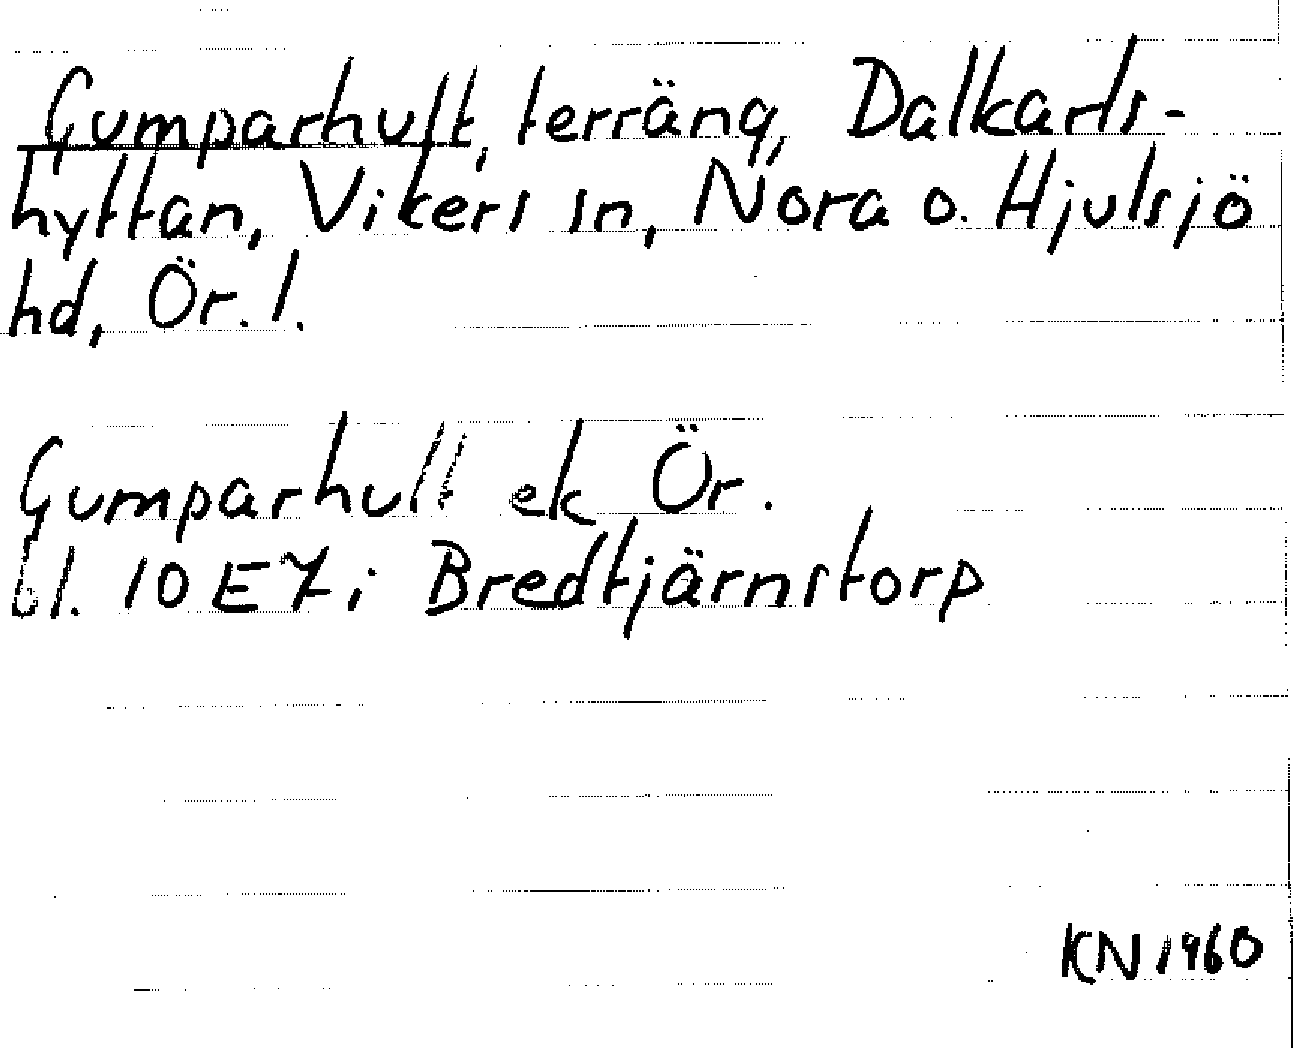 Gumparhult, terräng, Dalkarls-
hyttan, Vikers sn, Nora o. Hjulsjö
hd, Ör. l.
Gumparhult ek Ör.
bl. 10 E 7 i Bredtjärnstorp
KN 1960